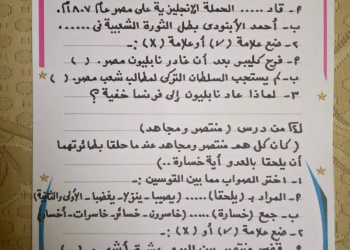 ٩- قاد ..... الحملة الإنجليزية على مصر عام ١٨٠٧م.
ب- أحمد الأبنودى بطل الثورة الشعبية فى ......
٢- ضع علامة (√) أو علامة (X) :-
٩- فرح كليبر بعد أن غادر نابليون مصر. ( )
ب- لم يستجب السلطان التركى لمطالب شعب مصر. ( )
٣- لماذا عاد نابليون إلى فرنسا خفية ؟
من درس ( منتصر ومجاهد )
( كان كل هم منتصر ومجاهد عندما حلقتا بطائرتهما
أن يلحقا بالعدو أية خسارة .. )
١- اختر الصواب مما بين القوسين :-
٩- المراد بـ (يلحقا) ..... (يصيبا - ينزلا - يغضبا - الأولى والثانية)
ب- جمع (خسارة) ..... (خاسرون - خسائر - خاسرات - أخسار)
٢- ضع علامة (√) أو (X) :-